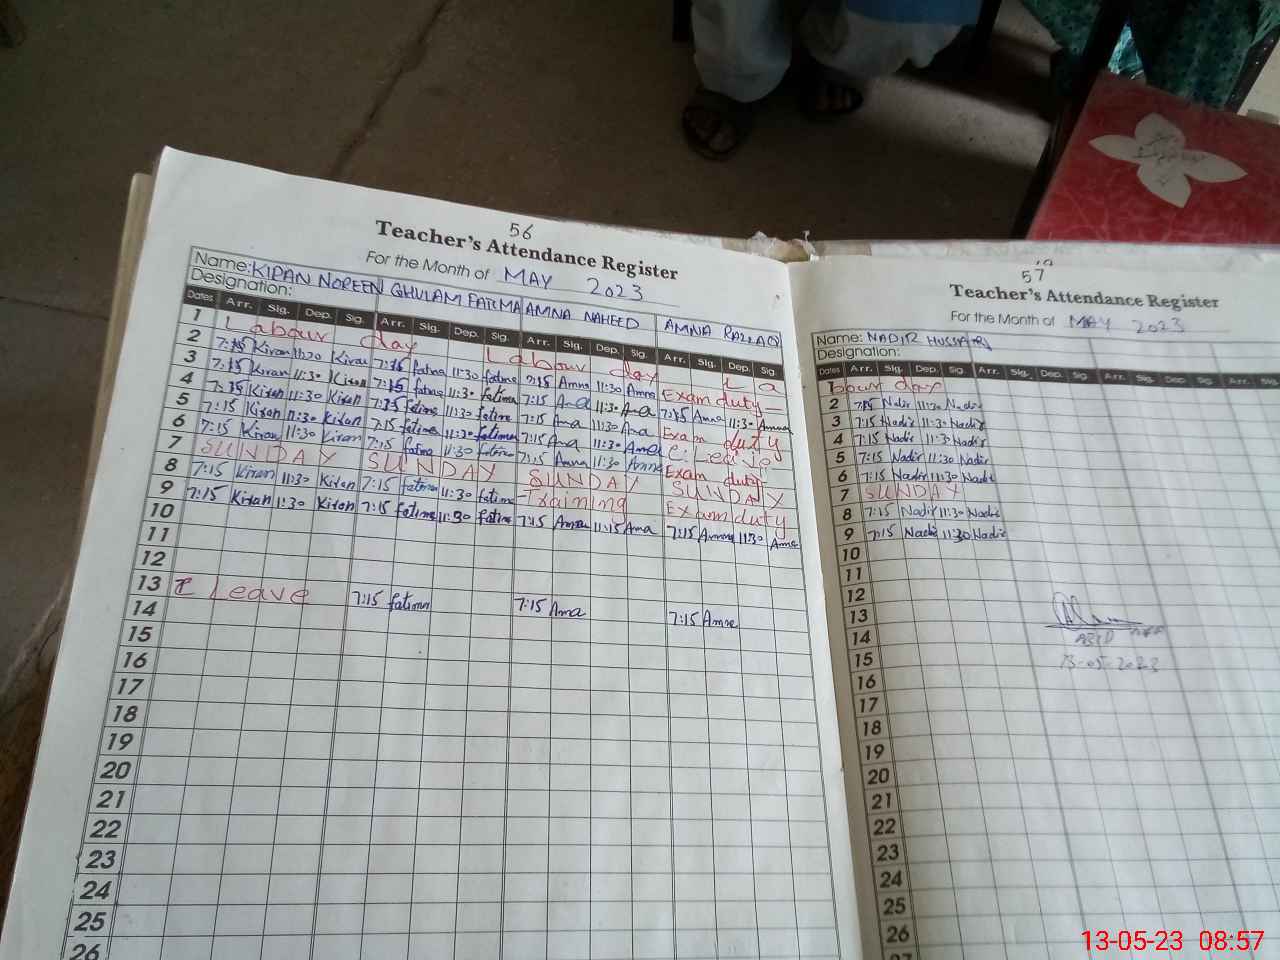 56
Teacher's Attendance Register
For the Month of MAY 2023
Name: KIRAN NOREEN GHULAM FATIMA AMNA NAHEED AMNA RAZZAQ
Designation:
Dates Arr. Sig. Dep. Sig. Arr. Sig. Dep. Sig. Arr. Sig. Dep. Sig. Arr. Sig. Dep. Sig.
1 Labour day Labour day La
2 7:15 Kiran 11:30 Kiran 7:15 fatima 11:30 fatima 7:15 Amna 11:30 Amna Exam duty
3 7:15 Kiran 11:30 Kiran 7:15 fatima 11:30 fatima 7:15 Ama 11:30 Ama 7:15 Amna 11:30 Amna
4 7:15 Kiran 11:30 Kiran 7:15 fatima 11:30 fatima 7:15 Ama 11:30 Ama Exam duty
5 7:15 Kiran 11:30 Kiran 7:15 fatima 11:30 fatima 7:15 Ama 11:30 Ama
6 7:15 Kiran 11:30 Kiran 7:15 fatma 11:30 fatima 7:15 Amna 11:30 Amna Exam duty
7 SUNDAY SUNDAY SUNDAY SUNDAY
8 7:15 Kiran 11:30 Kiran 7:15 fatima 11:30 fatima Training Exam duty
9 7:15 Kiran 11:30 Kiran 7:15 fatima 11:30 fatima 7:15 Amna 11:15 Ama 7:15 Amna 11:30 Amna
10
11
12
13 Leave 7:15 fatima 7:15 Ama 7:15 Amna
14
15
16
17
18
19
20
21
22
23
24
25
26
57
Teacher's Attendance Register
For the Month of MAY 2023
Name: NADIR HUSSAIN
Designation:
Dates Arr. Sig. Dep. Sig. Arr. Sig. Dep. Sig. Arr. Sig. Dep. Sig. Arr. Sig.
1 bour day
2 7:15 Nadir 11:30 Nadir
3 7:15 Nadir 11:30 Nadir
4 7:15 Nadir 11:30 Nadir
5 7:15 Nadir 11:30 Nadir
6 7:15 Nadir 11:30 Nadir
7 SUNDAY
8 7:15 Nadir 11:30 Nadir
9 7:15 Nadir 11:30 Nadir
10
11
12
13
14
15
13-05-2023
16
17
18
19
20
21
22
23
24
25
26
27
13-05-23 08:57